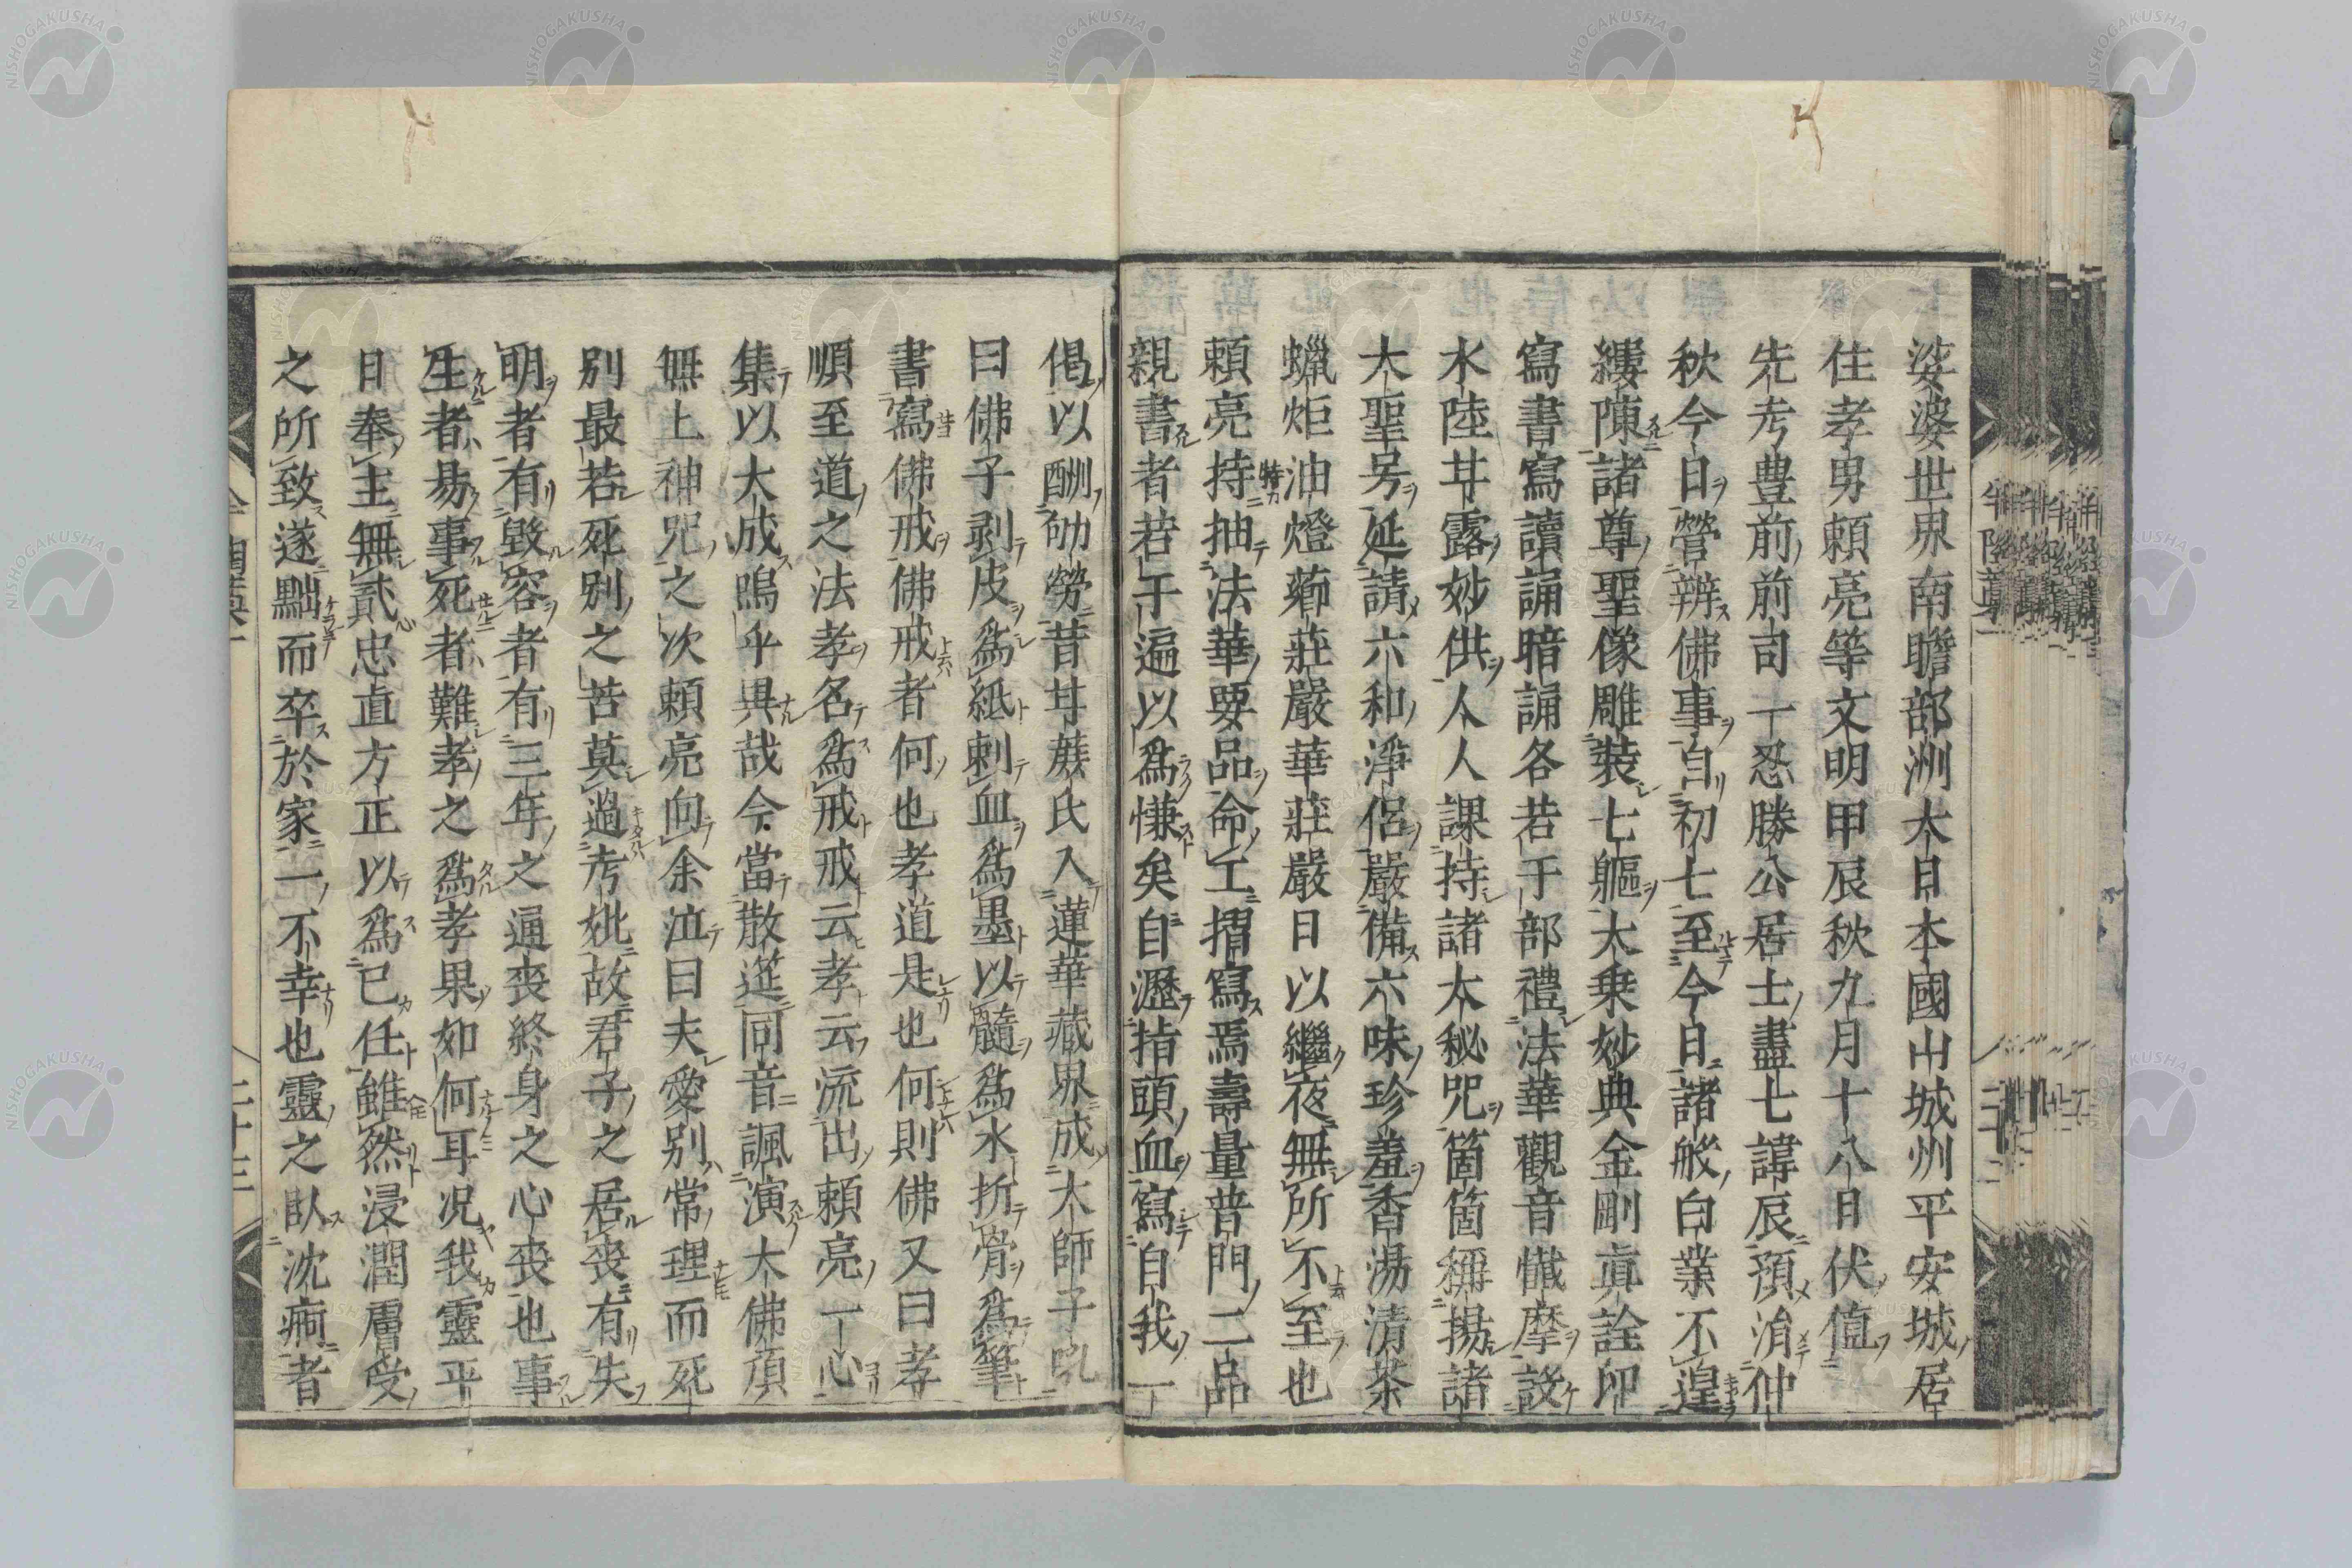 娑婆世界南瞻部洲大日本國山城州平安城居
住孝男頼亮等文明甲辰秋九月十八日伏値
先考豊前前司一忍勝公居士盡七諱辰預涓仲
秋今日營辨佛事自初七至今日諸般白業不遑
縷陳諸尊聖像雕裝七軀大乗妙典金剛眞詮印
寫書寫讀誦暗誦各若干部禮法華觀音懺摩設
水陸甘露妙供人人課持諸大秘咒箇箇稱揚諸
大聖号延請六和淨侶嚴備六味珍羞香湯清茶
蠟炬油燈薌莊嚴華莊嚴日以繼夜無所不至也
頼亮持抽法華要品命工摺寫焉壽量普門二品
親書者若干遍以爲慊矣自瀝指頭血寫自我一
偈以酬劬勞昔廿蕨氏入蓮華藏界成大師子吼
曰佛子剥皮爲紙刺血爲墨以髓爲水折骨爲筆
書寫佛戒佛戒者何也孝道是也何則佛又曰孝
順至道之法孝名爲戒戒云孝云流出頼亮一心
集以大成嗚乎異哉今當散筵同音諷演大佛頂
無上神咒之次頼亮向余泣曰夫愛別常理而死
別最若死別之苦莫過考妣故君子之居喪有失
明者有毀容者有三年之通喪終身之心喪也事
生者易事死者難孝之爲孝果如何耳况我靈平
日奉主無貳忠直方正以爲己任雖然浸潤膚受
之所致遂黜而卒於家一不幸也靈之臥沈痾者